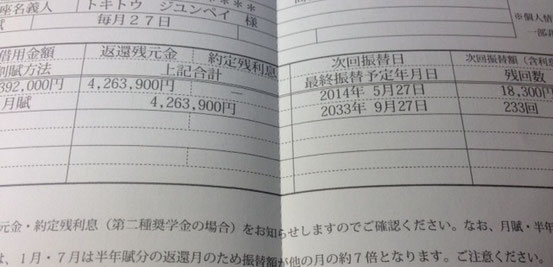 座名義人 トキトウ ジユンペイ 様
毎月27日
※個人情
一部非
借用金額 返還残元金 約定残利息 次回振替日 次回振替額(含利息
割賦方法 上記合計 最終振替予定年月日 残回数
692,000円 4,263,900円 2014年 5月27日 18,300円
月賦 4,263,900円 2033年 9月27日 233回
元金・約定残利息(第二種奨学金の場合)をお知らせしますのでご確認ください。なお、月賦・半年
は、1月・7月は半年賦分の返還月のため振替額が他の月の約7倍となります。ご注意ください。